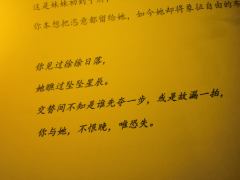 这是妹妹初到
你本想把恣意都留给她，如今她却将象征自由的
你见过徐徐日落，
她瞧过坠坠星辰。
交替间不知是谁先夺一步，或是故漏一拍，
你与她，不恨晚，唯恐失。